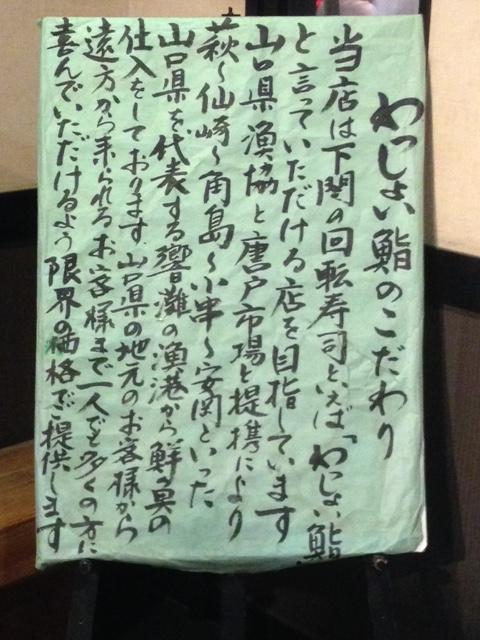 わっしょい鮨のこだわり
当店は下関の回転寿司といえば「わっしょい鮨
と言っていただける店を目指しています
山口県漁協と唐戸市場と提携により
萩～仙崎～角島～小串～安岡といった
山口県を代表する響灘の漁港から鮮魚の
仕入をしております。山口県の地元のお客様から
遠方から来られるお客様まで一人でも多くの方に
喜んでいただけるよう限界の価格でご提供します